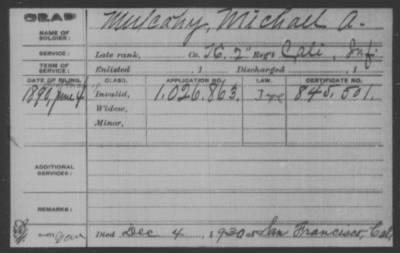 Mulcahy, Michael A.
NAME OF SOLDIER:
SERVICE: Late rank, Co. K, 2" Reg't Cali, Inf.
TERM OF SERVICE: Enlisted , 1 Discharged , 1
DATE OF FILING. CLASS. APPLICATION NO. LAW. CERTIFICATE NO.
June 4 Invalid, 1,026,863. 845,501.
Widow,
Minor,
ADDITIONAL SERVICES:
REMARKS:
Died Dec 4, 1930 San Francisco, Cal.